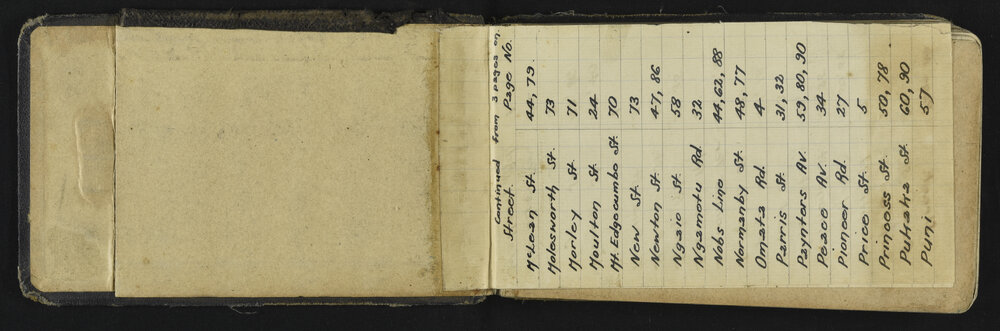 Continued from 3 pages on.
Street. Page No.
McLean St. 44, 79.
Molesworth St. 73
Morley St. 71
Moulton St. 24
Mt. Edgecumbe St. 70
New St. 73
Newton St. 47, 86
Ngaio St. 58
Ngamotu Rd. 32
Nobs Line 44, 62, 88
Normanby St. 48, 77
Omata Rd. 4
Parris St. 31, 32
Paynters Av. 59, 80, 90
Peace Av. 34
Pioneer Rd. 27
Price St. 5
Princess St. 50, 78
Pukaka St. 60, 90
Puni 57